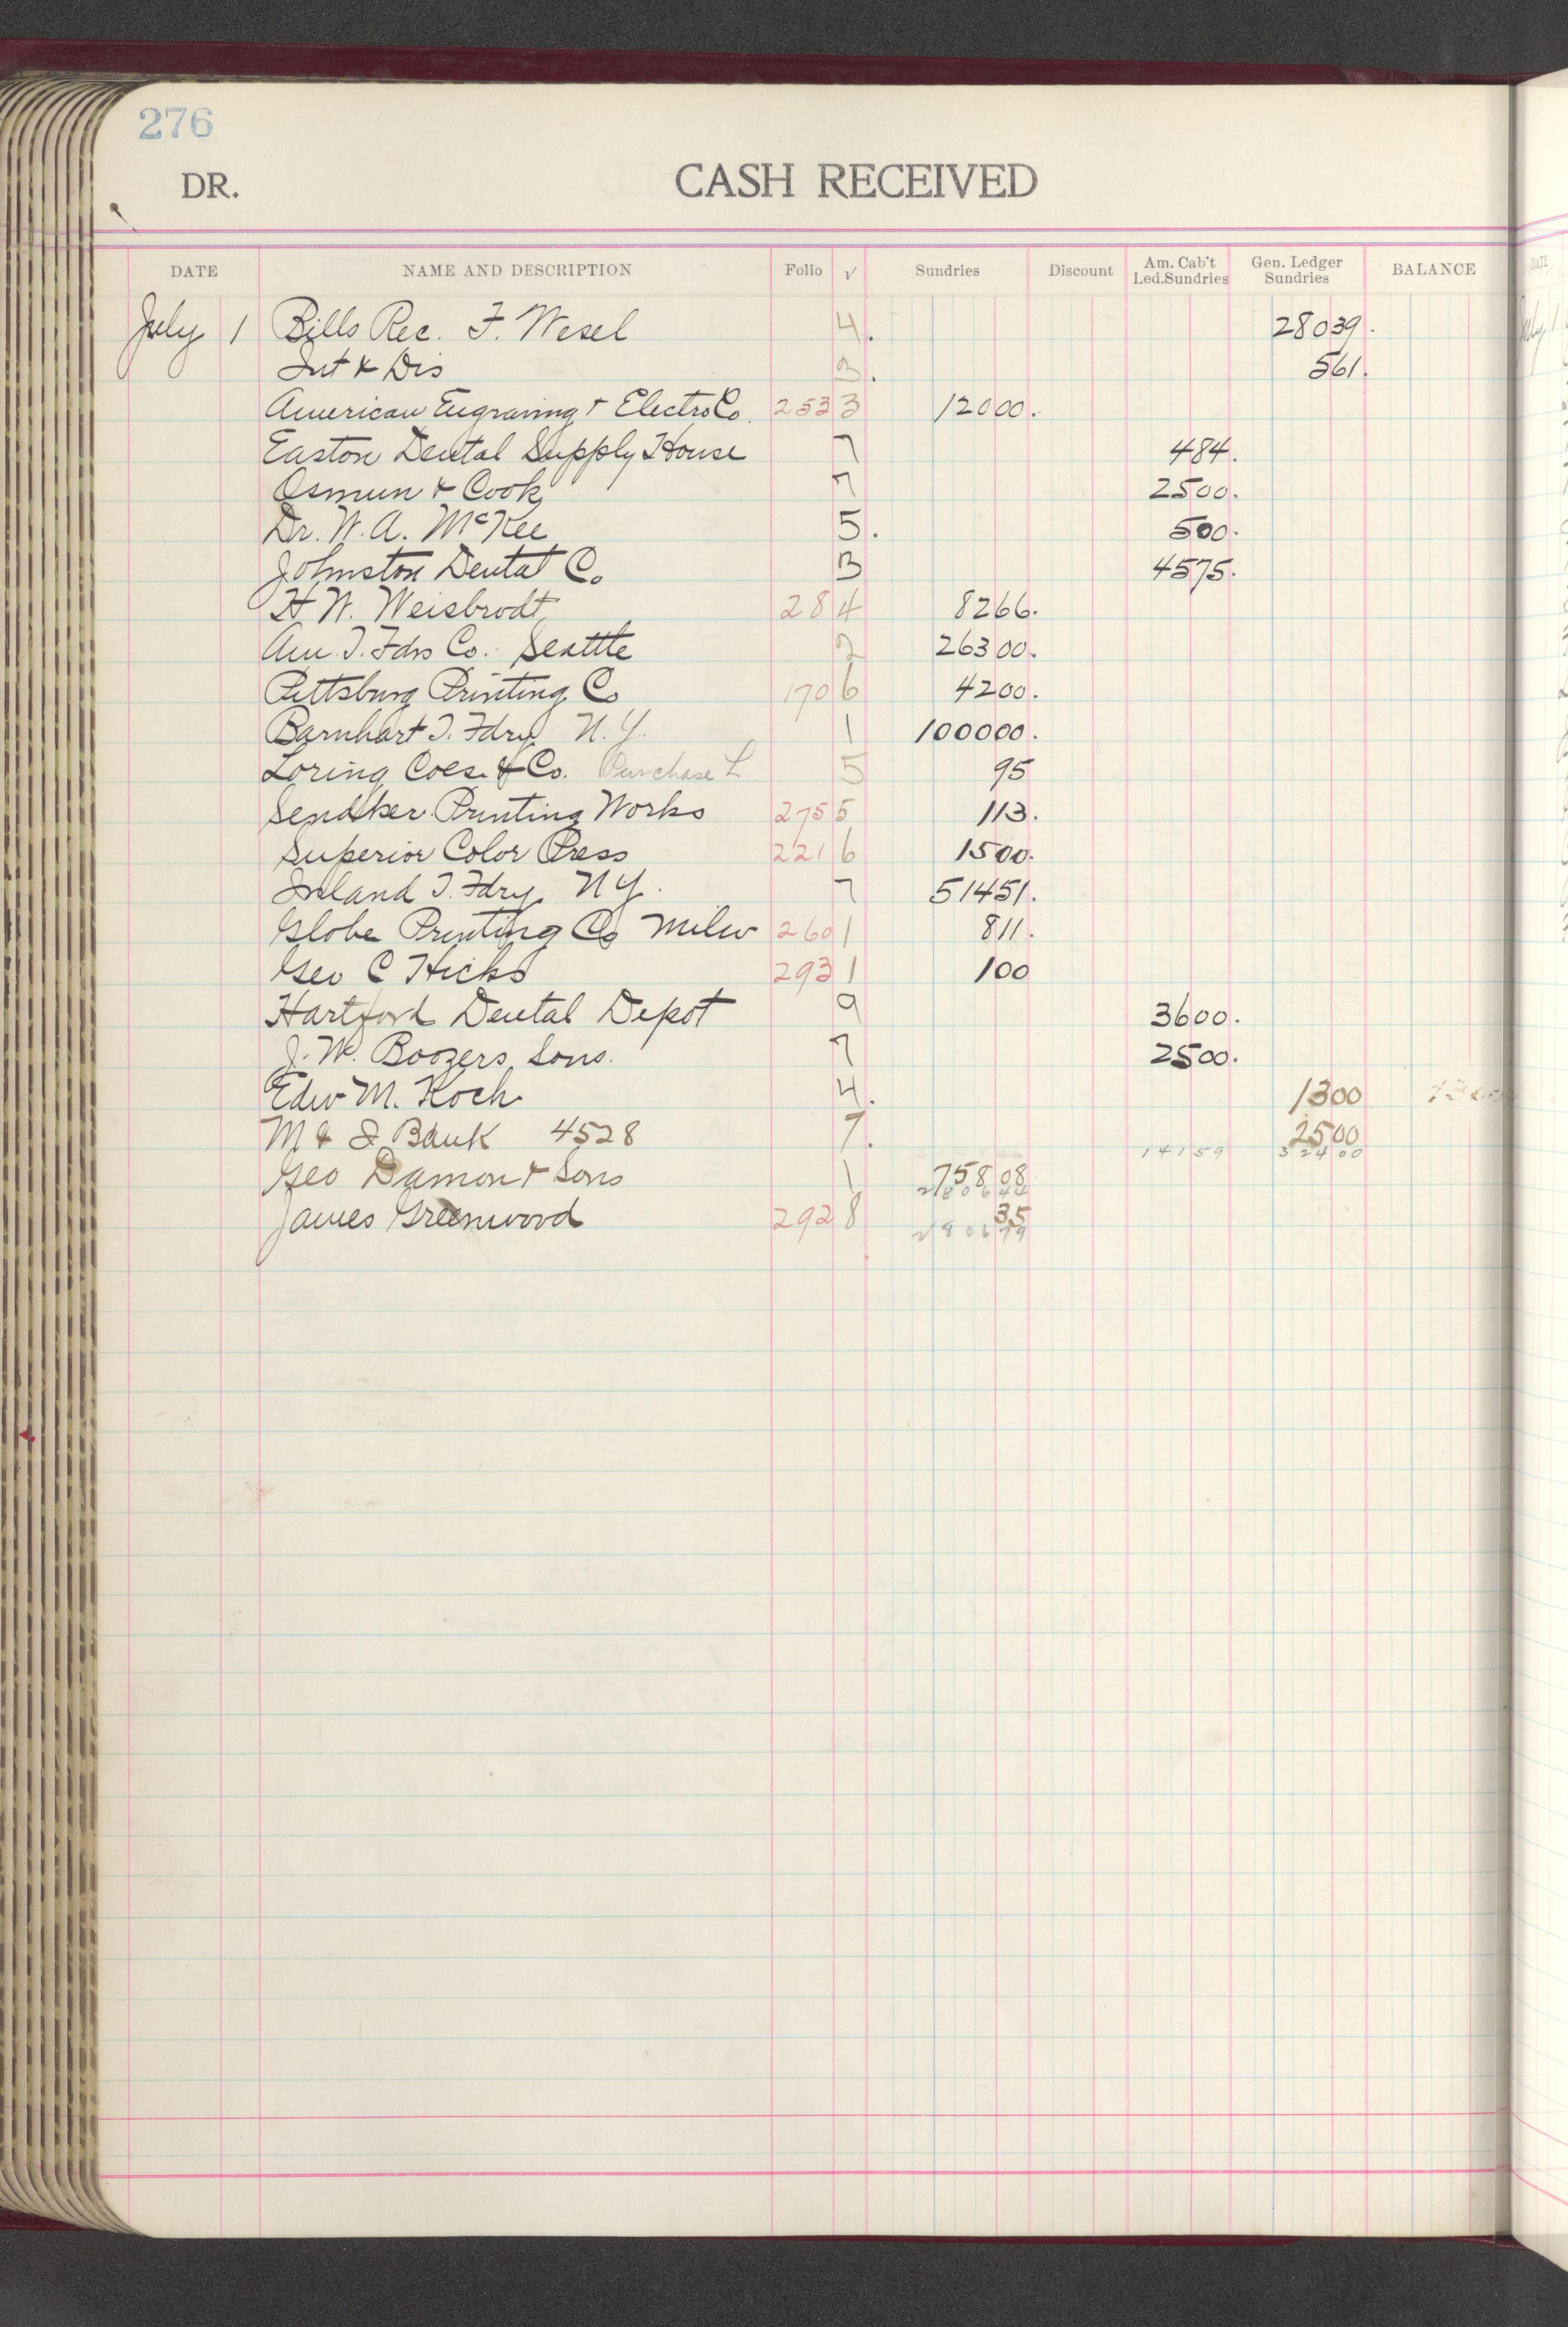 276
DR. CASH RECEIVED
DATE NAME AND DESCRIPTION Folio √ Sundries Discount Am. Cab't Led.Sundries Gen. Ledger Sundries BALANCE DATE
July 1 Bills Rec. F. Wesel 4. 28039.
Int & Dis 3. 561.
American Engraving + Electro Co. 253 3 12000.
Easton Dental Supply House 7 484.
Osmun & Cook 7 2500.
Dr. W. A. McKee 5. 500.
Johnston Dental Co 3 4575.
H. W. Weisbrodt 28 4 8266.
Am. T. Fdrs Co. Seattle 2 26300.
Pittsburg Printing Co 170 6 4200.
Barnhart T. Fdry N. Y. 1 100000.
Loring Coes & Co. Purchase L 5 95
Sendker Printing Works 275 5 113.
Superior Color Press 221 6 1500.
Inland T. Fdry N Y. 7 51451.
Globe Printing Co Milw 260 1 811.
Geo C Hicks 293 1 100
Hartford Dental Depot 9 3600.
J. W. Boozers Sons. 7 2500.
Edw M. Koch 4. 1300
M & I Bank 4528 7. 2500
14159 32400
Geo Damon & Sons 1 75808
280644
James Greenwood 292 8 35
280679